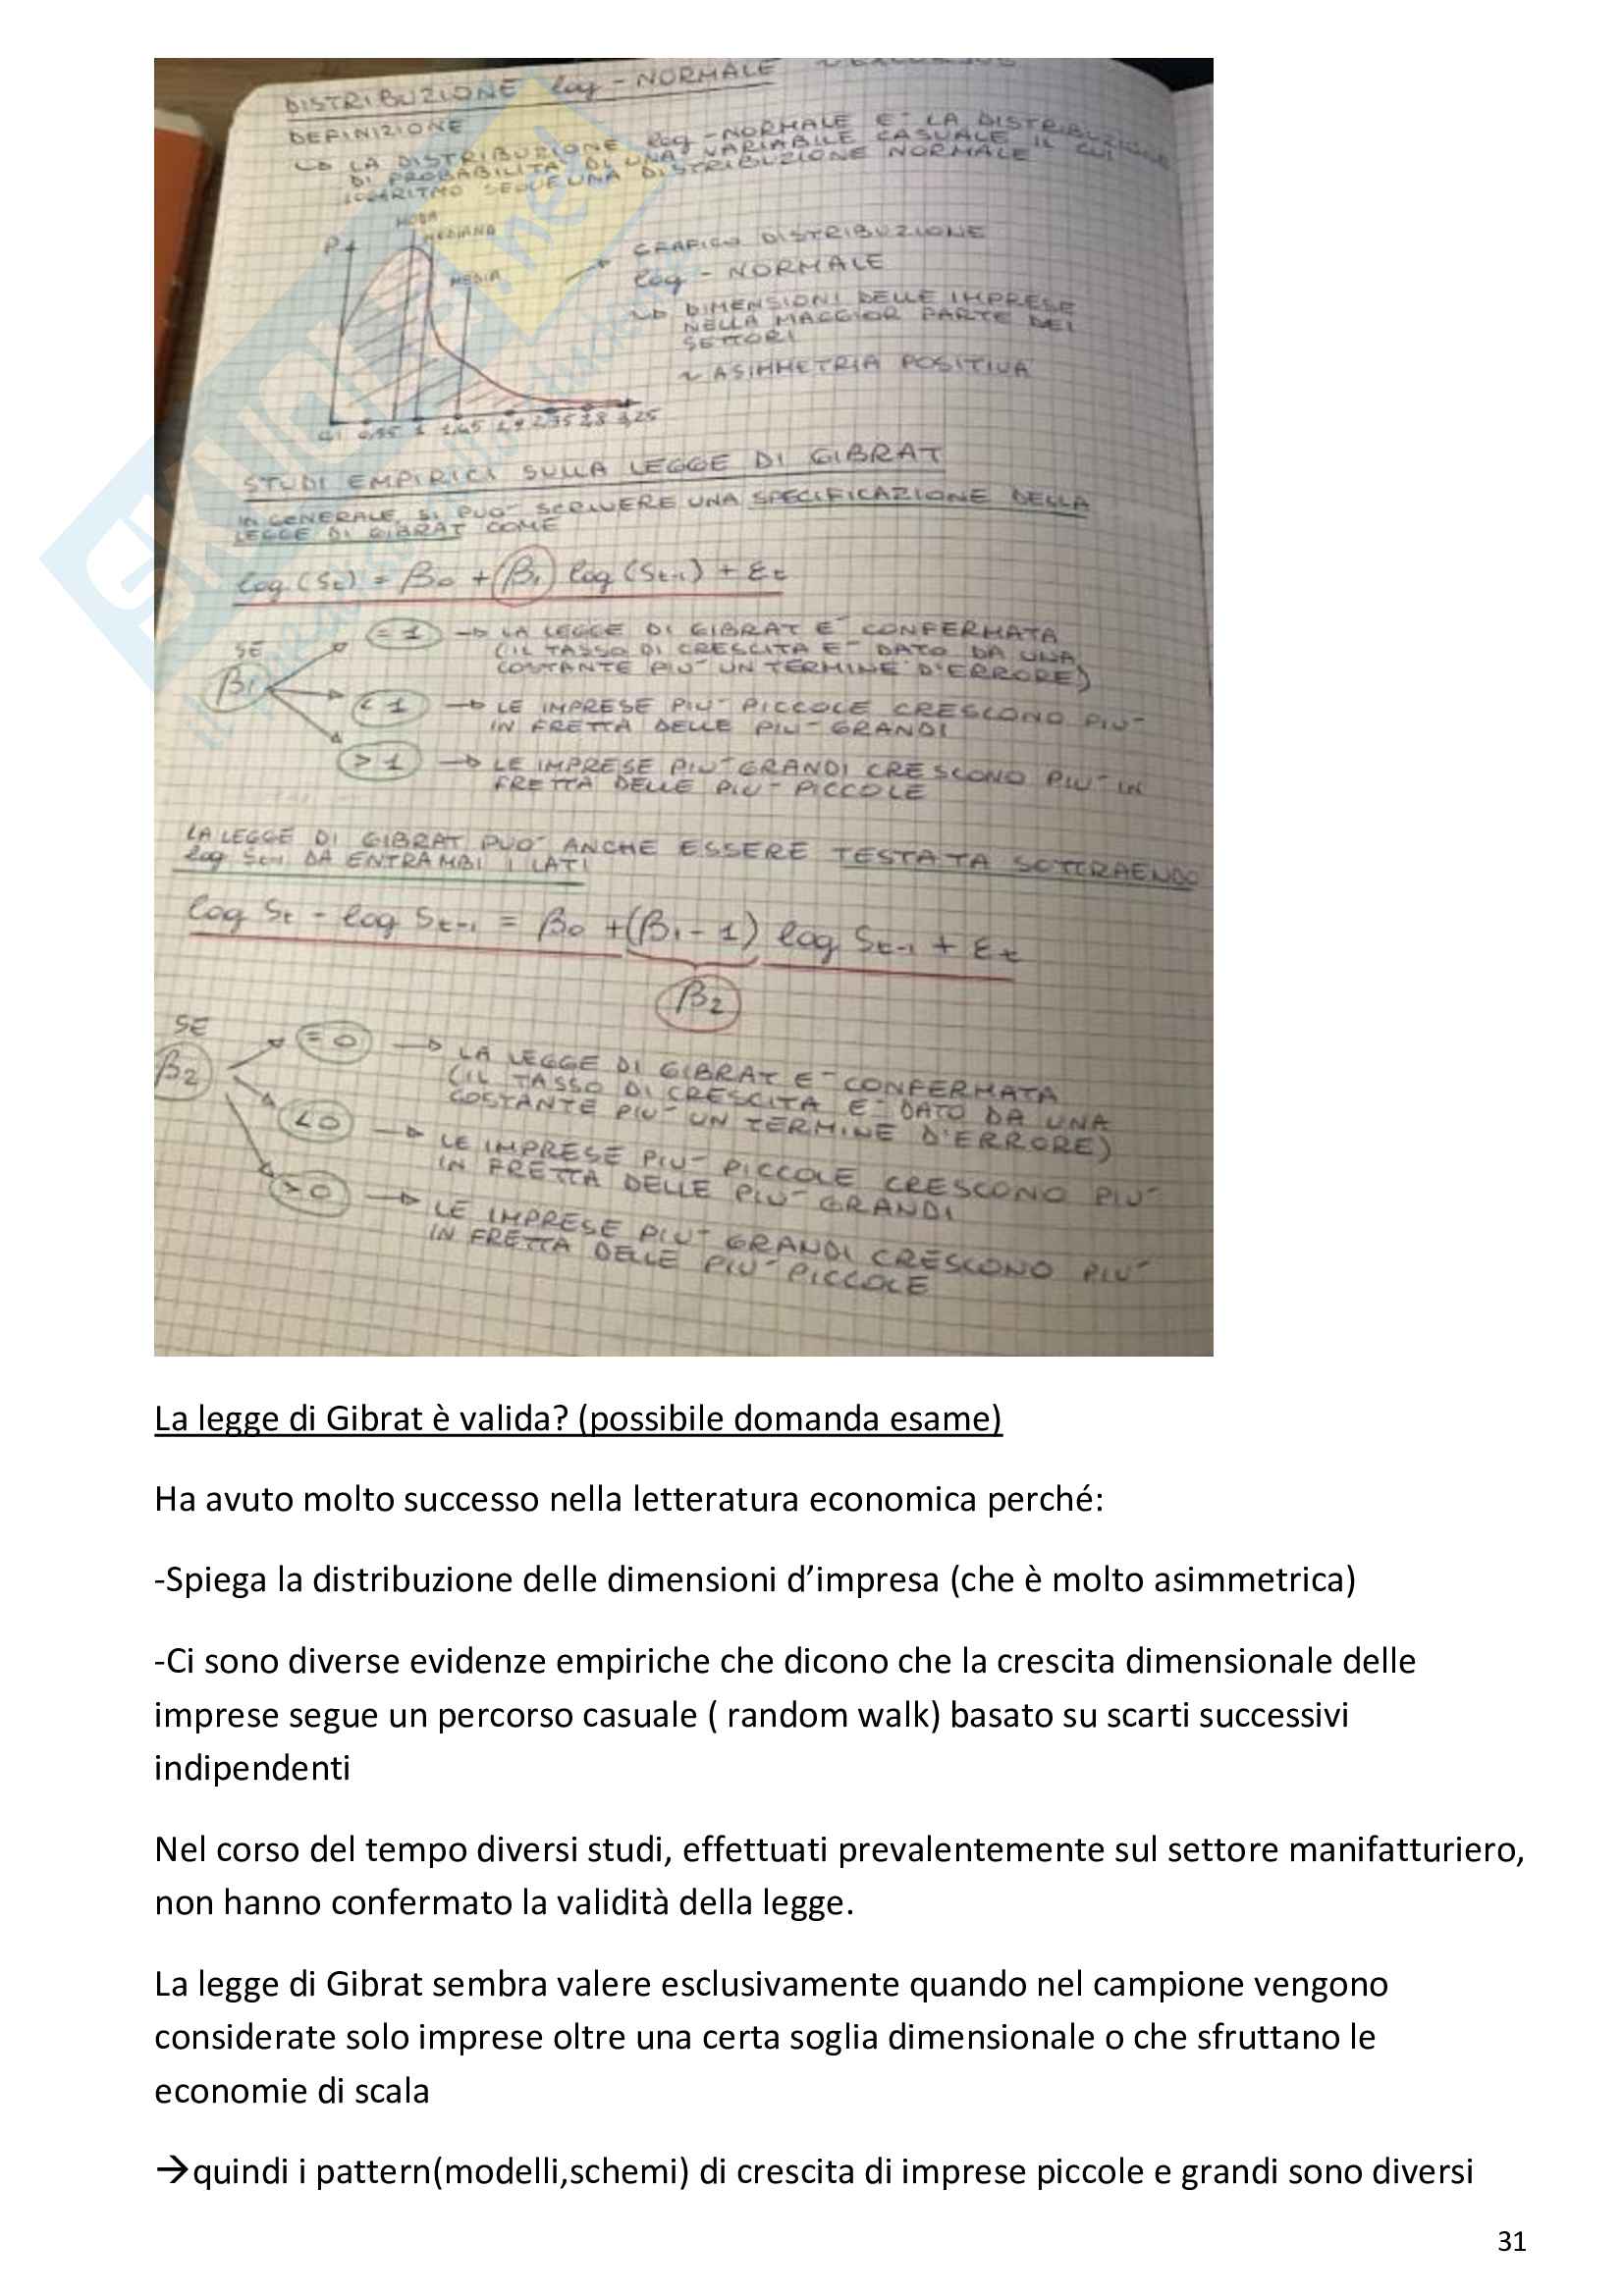 DISTRIBUZIONE log-NORMALE
DEFINIZIONE
LA DISTRIBUZIONE log-NORMALE E' LA DISTRIBUZIONE
DI PROBABILITA' DI UNA VARIABILE CASUALE IL CUI
LOGARITMO SEGUE UNA DISTRIBUZIONE NORMALE
P
MODA
MEDIANA
MEDIA
GRAFICO DISTRIBUZIONE
log - NORMALE
DIMENSIONI DELLE IMPRESE
NELLA MAGGIOR PARTE DEI
SETTORI
ASIMMETRIA POSITIVA
STUDI EMPIRICI SULLA LEGGE DI GIBRAT
IN GENERALE SI PUO' SCRIVERE UNA SPECIFICAZIONE DELLA
LEGGE DI GIBRAT COME
log (St) = β0 + β1 log (St-1) + εt
SE
β1
= 1 → LA LEGGE DI GIBRAT E' CONFERMATA
(IL TASSO DI CRESCITA E' DATO DA UNA
COSTANTE PIU' UN TERMINE D'ERRORE)
< 1 → LE IMPRESE PIU' PICCOLE CRESCONO PIU'
IN FRETTA DELLE PIU' GRANDI
> 1 → LE IMPRESE PIU' GRANDI CRESCONO PIU' IN
FRETTA DELLE PIU' PICCOLE
LA LEGGE DI GIBRAT PUO' ANCHE ESSERE TESTATA SOTTRAENDO
log St-1 DA ENTRAMBI I LATI
log St - log St-1 = β0 + (β1 - 1) log St-1 + εt
β2
SE
β2
= 0 → LA LEGGE DI GIBRAT E' CONFERMATA
(IL TASSO DI CRESCITA E' DATO DA UNA
COSTANTE PIU' UN TERMINE D'ERRORE)
< 0 → LE IMPRESE PIU' PICCOLE CRESCONO PIU'
IN FRETTA DELLE PIU' GRANDI
> 0 → LE IMPRESE PIU' GRANDI CRESCONO PIU'
IN FRETTA DELLE PIU' PICCOLE
La legge di Gibrat è valida? (possibile domanda esame)
Ha avuto molto successo nella letteratura economica perché:
-Spiega la distribuzione delle dimensioni d’impresa (che è molto asimmetrica)
-Ci sono diverse evidenze empiriche che dicono che la crescita dimensionale delle
imprese segue un percorso casuale ( random walk) basato su scarti successivi
indipendenti
Nel corso del tempo diversi studi, effettuati prevalentemente sul settore manifatturiero,
non hanno confermato la validità della legge.
La legge di Gibrat sembra valere esclusivamente quando nel campione vengono
considerate solo imprese oltre una certa soglia dimensionale o che sfruttano le
economie di scala
→quindi i pattern(modelli,schemi) di crescita di imprese piccole e grandi sono diversi
31